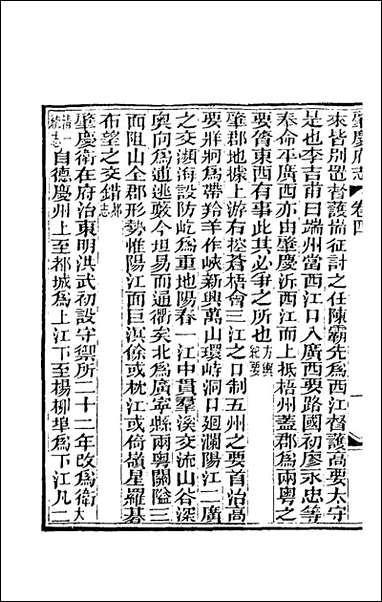 肇慶府志　卷四　一
來皆別置督護耑征討之任陳霸先爲西江督護高要太守
是也李吉甫曰端州當西江口入廣西要路國初廖永忠等
奉命平廣西亦由肇慶泝西江而上抵梧州蓋郡爲兩粤之
要膂東西有事此其必爭之所也方輿紀要
肇郡地據上游右控蒼梧會三江之口制五州之要首治高
要牂牁爲帶羚羊作峽新興萬山環峙洞口迴瀾陽江二廣
之交瀕海設防屹爲重地陽春一江中貫羣溪交流山谷深
奧向爲逋逃藪今坦易而通衢矣北爲廣寧縣兩粤關隘三
面阻山全郡形勢惟陽江面巨溟餘或枕江或倚嶺星羅碁
布望之交錯郝志
肇慶衛在府治東明洪武初設守禦所二十二年改爲衛大
清一統志自德慶州上至都城爲上江下至楊柳埠爲下江凡二